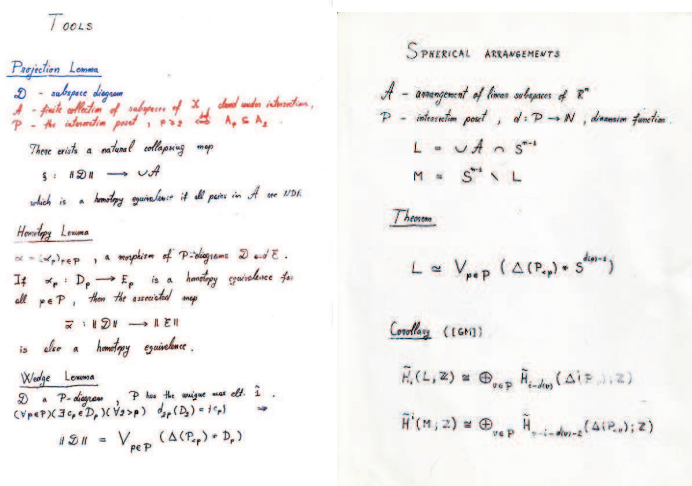 TOOLS
Projection Lemma
D - subspace diagram
A - finite collection of subspaces of X, closed under intersection,
P - the intersection poset, p ≥ q ⟺ A_p ⊆ A_q.
There exists a natural collapsing map
ξ : ‖D‖ ⟶ ∪A
which is a homotopy equivalence if all pairs in A are NDR.
Homotopy Lemma
α = (α_p)_{p∈P}, a morphism of P-diagrams D and E.
If α_p : D_p ⟶ E_p is a homotopy equivalence for
all p∈P, then the associated map
α̅ : ‖D‖ ⟶ ‖E‖
is also a homotopy equivalence.
Wedge Lemma
D a P-diagram, P has the unique max elt. 1̂.
(∀p∈P)(∃c_p∈D_p)(∀q>p) d_{qp}(D_q) = {c_p} ⇒
‖D‖ ≃ V_{p∈P} (Δ(P_{<p}) * D_p)
SPHERICAL ARRANGEMENTS
A - arrangement of linear subspaces of R^n
P - intersection poset, d : P → N, dimension function.
L = ∪A ∩ S^{n-1}
M = S^{n-1} \ L
Theorem
L ≃ V_{p∈P} (Δ(P_{<p}) * S^{d(p)-1})
Corollary ([GM])
H̃_i(L; Z) ≅ ⊕_{v∈P} H̃_{i-d(v)} (Δ(P_{<v}); Z)
H̃^i(M; Z) ≅ ⊕_{v∈P} H̃_{n-i-d(v)-2} (Δ(P_{<v}); Z)